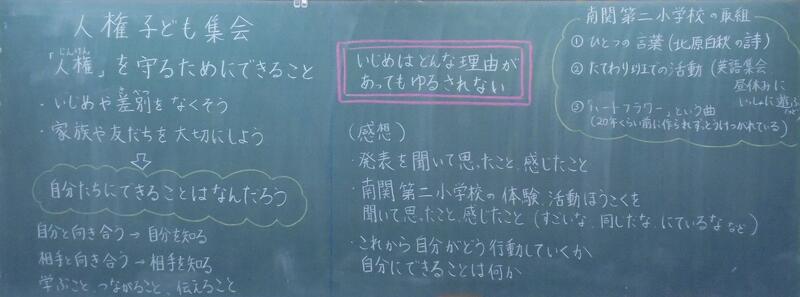 人権子ども集会
じんけん
「人権」を守るためにできること
・いじめや差別をなくそう
さべつ
・家族や友だちを大切にしよう
自分たちにできることはなんだろう
自分と向き合う→自分を知る
相手と向き合う→相手を知る
学ぶこと、つながること、伝えること
いじめはどんな理由が
あってもゆるされない
(感想)
・発表を聞いて思ったこと、感じたこと
・南関第二小学校の体験、活動ほうこくを
聞いて思ったこと、感じたこと(すごいな、同じだな、にているな など)
・これから自分がどう行動していくか
自分にできることは何か
南関第二小学校の取組
① ひとつの言葉(北原白秋の詩)
② たてわり班での活動(英語集会
昼休みに
いっしょに遊ぶ
など)
③「ハートフラワー」という曲
(20年くらい前に作られ、ずっとうけつがれている)